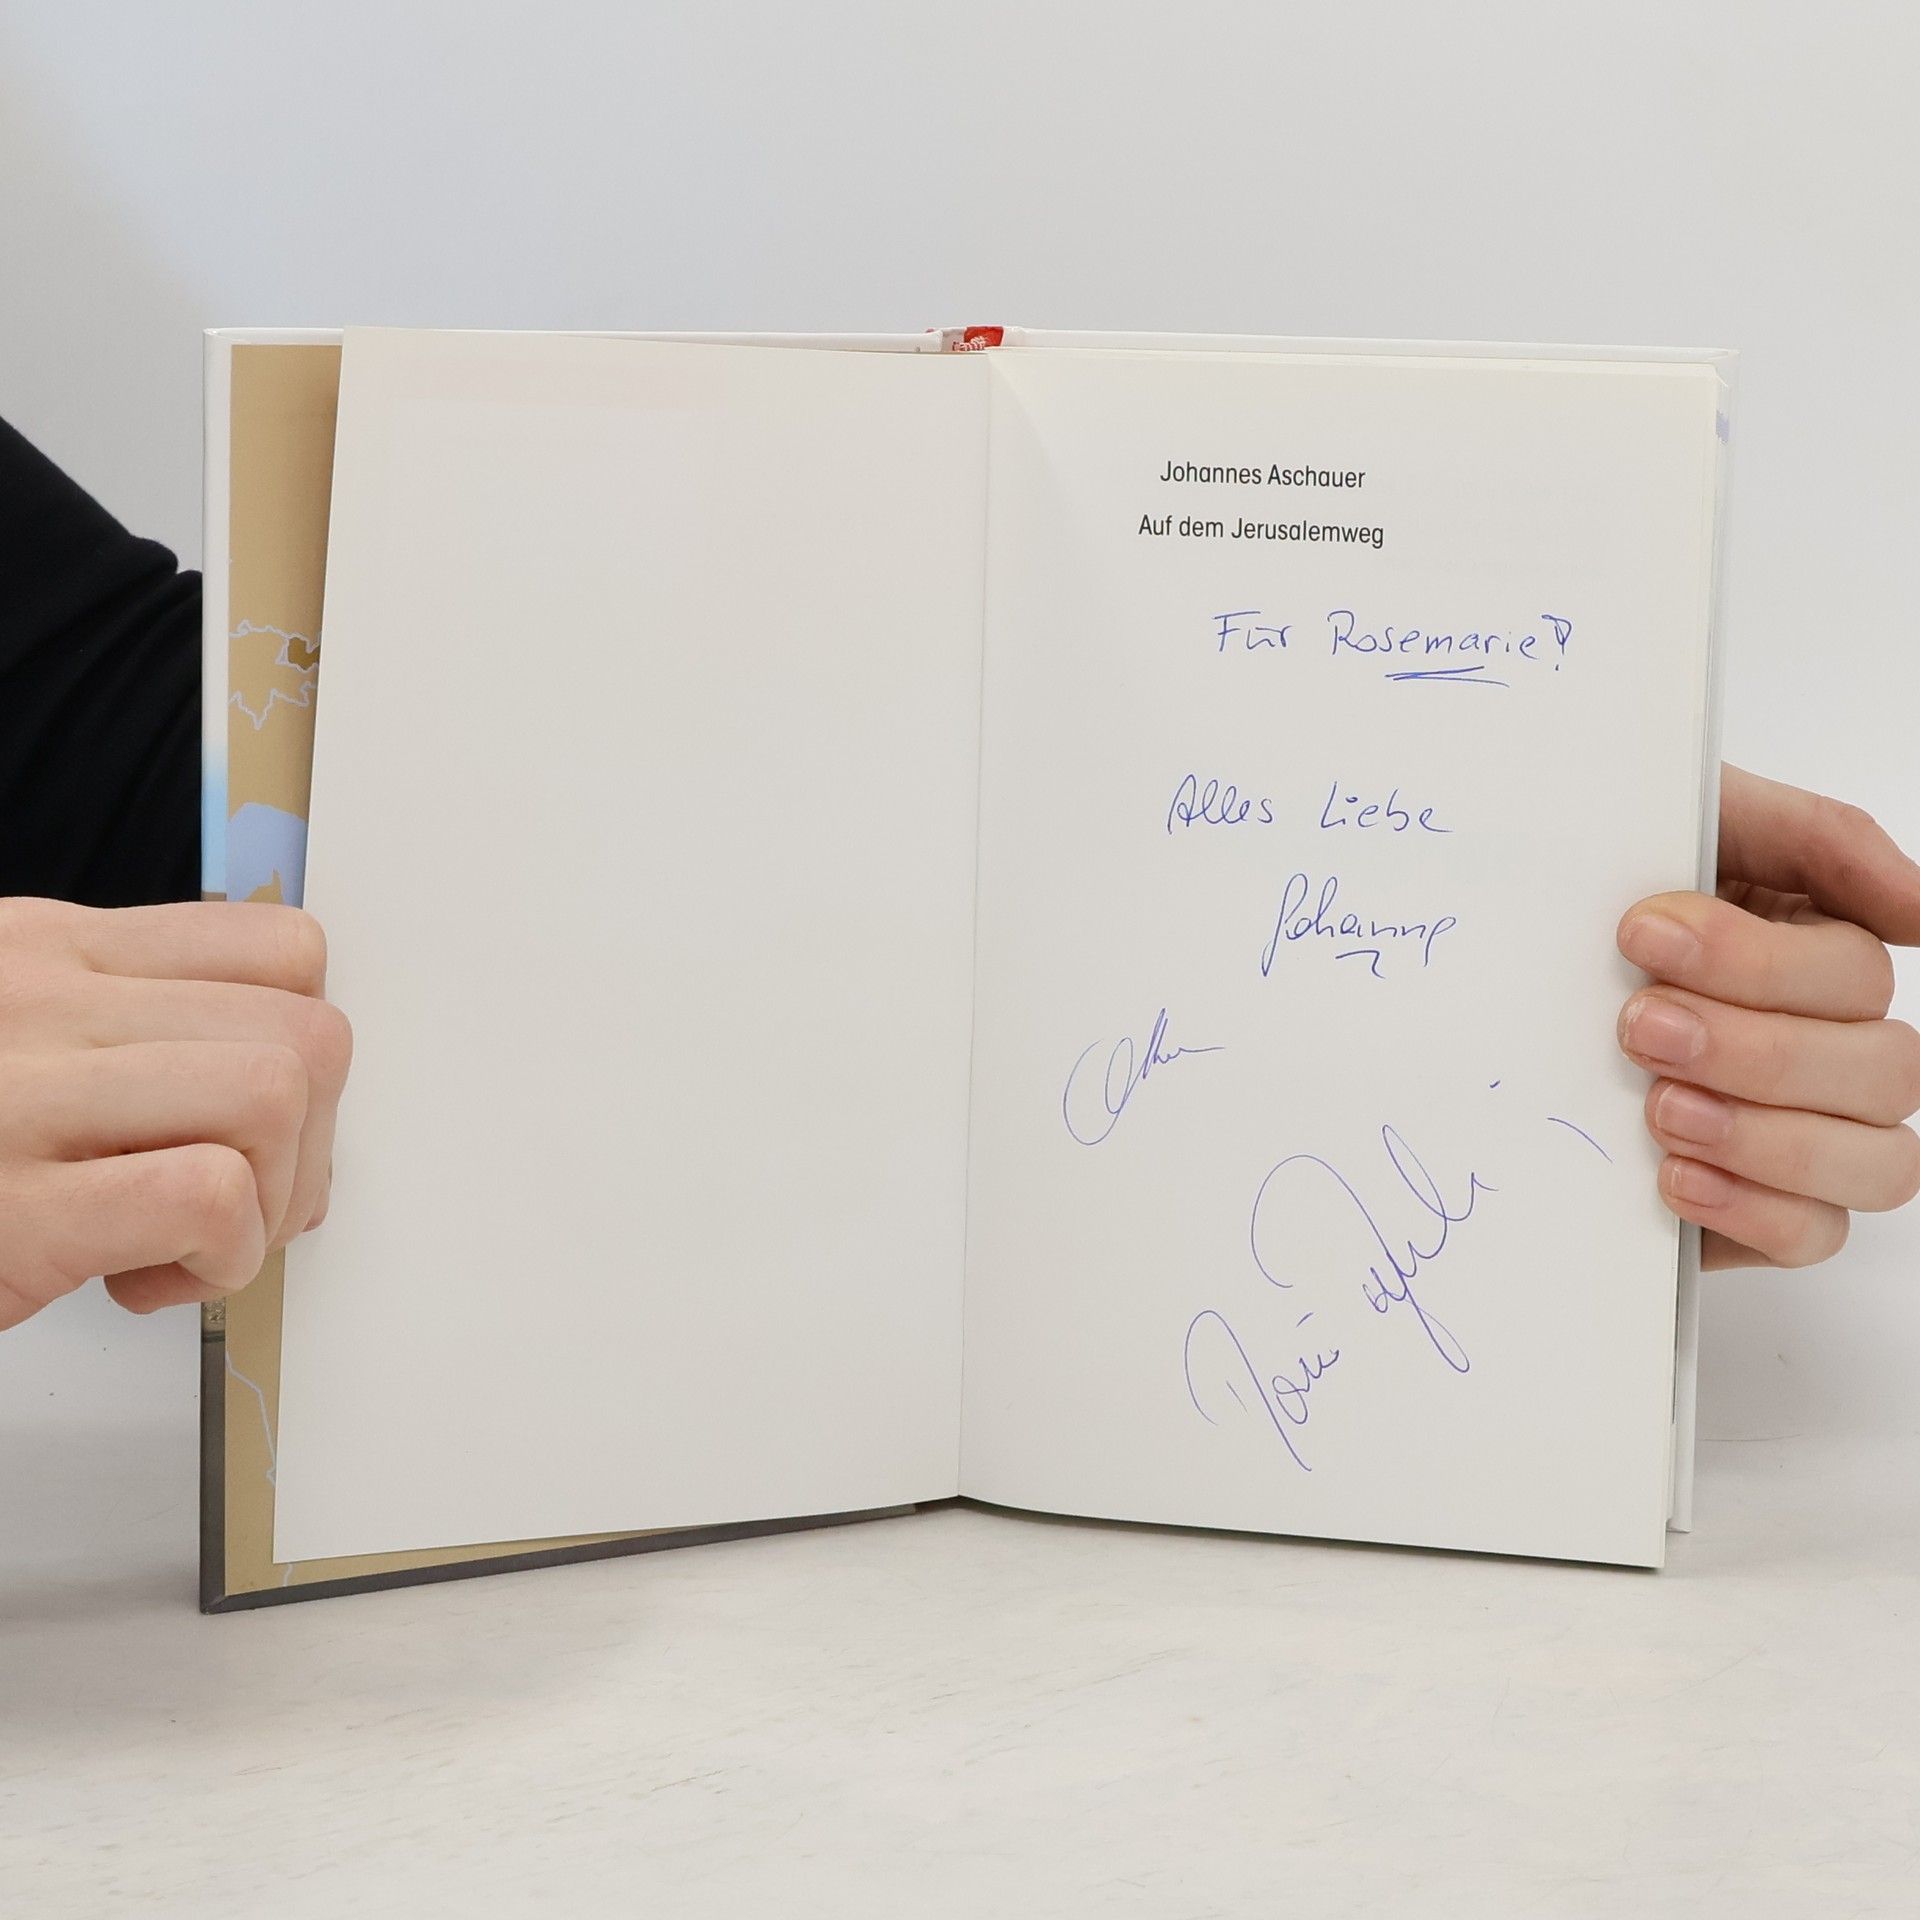 Johannes Aschauer
Auf dem Jerusalemweg
Für Rosemarie!
Alles Liebe
Johannes